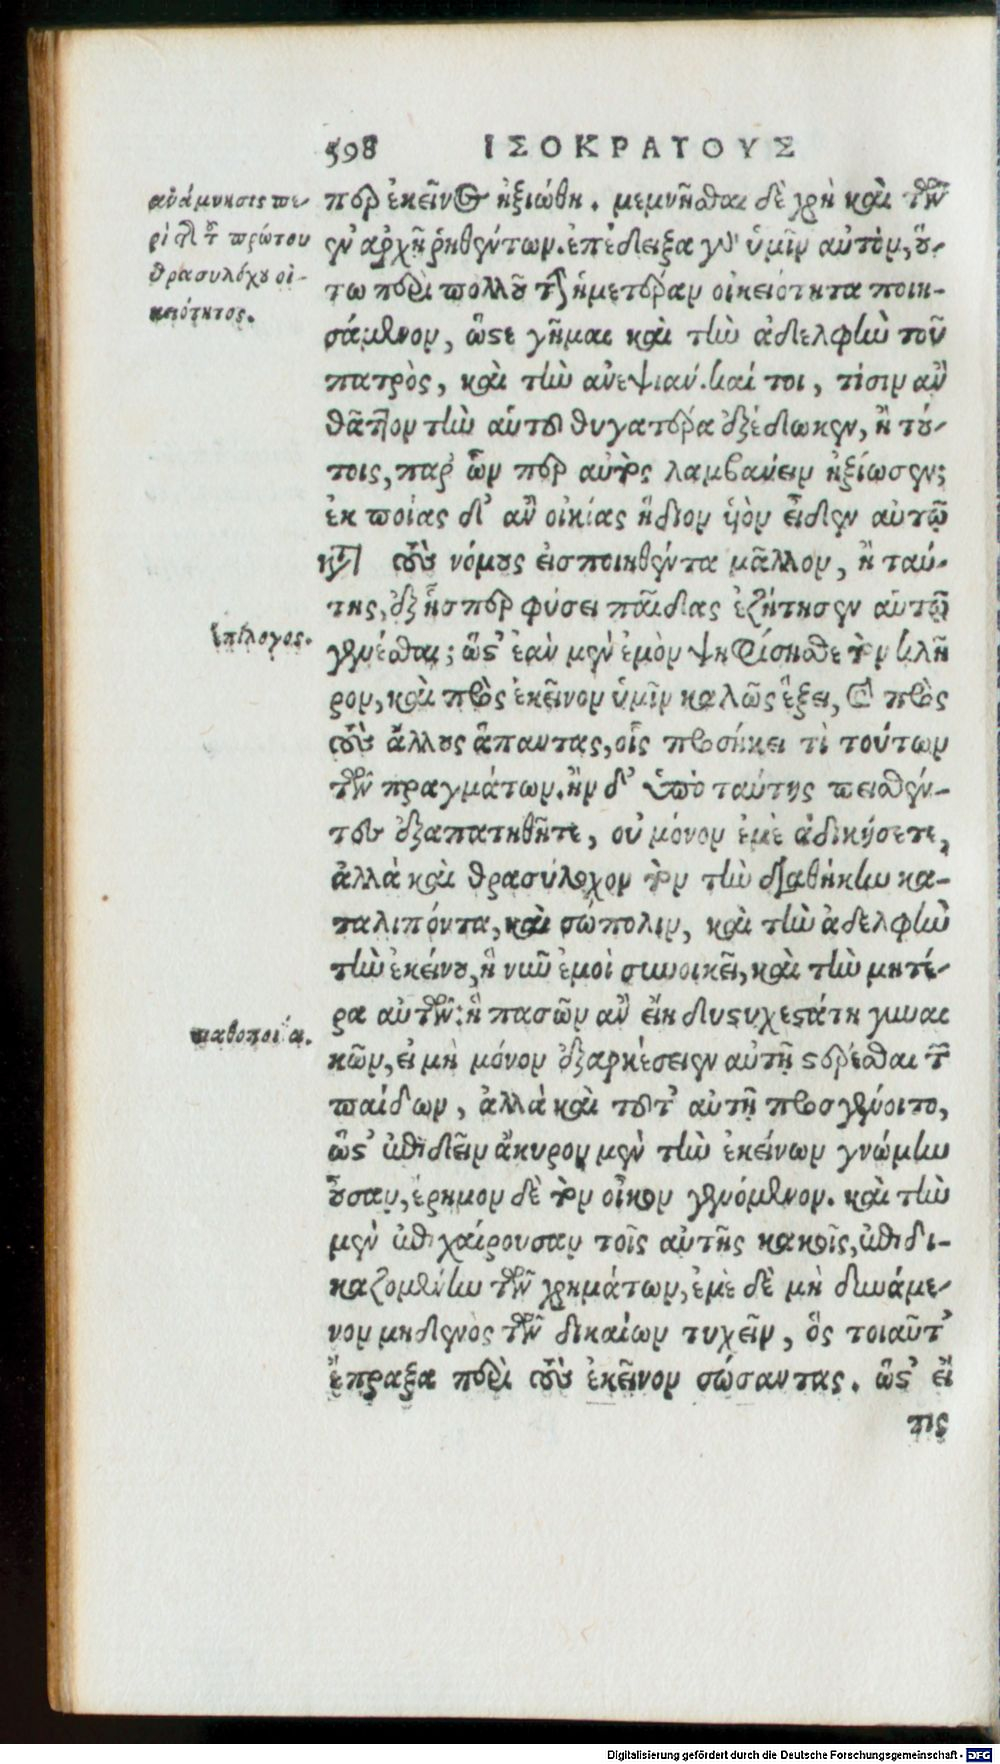 598 ΙΣΟΚΡΑΤΟΥΣ
ἀνάμνησις πε-
ρὶ τῆς τοῦ πρώτου
θρασυλόχου οἰ-
κειότητος.
περ ἐκεῖνος ἠξιώθη. μεμνῆσθαι δὲ χρὴ καὶ τῶν
ἐν ἀρχῇ ῥηθέντων. ἐπέδειξα γὰρ ὑμῖν αὐτὸν, οὕ-
τω περὶ πολλοῦ τὴν ἡμετέραν οἰκειότητα ποιη-
σάμενον, ὥστε γῆμαι καὶ τὴν ἀδελφὴν τοῦ
πατρὸς, καὶ τὴν ἀνεψιάν. καί τοι, τίσιν ἂν
θᾶττον τὴν αὑτοῦ θυγατέρα ἐξέδωκεν, ἢ τού-
τοις, παρ' ὧν περ αὐτὸς λαμβάνειν ἠξίωσεν;
ἐκ ποίας δ' ἂν οἰκίας ἥδιον υἱὸν εἶδεν αὑτῷ
κατὰ τοὺς νόμους εἰσποιηθέντα μᾶλλον, ἢ ταύ-
της, ἐξ ἧσπερ φύσει παῖδας ἐζήτησεν αὑτῷ
ἐπίλογος.
γενέσθαι; ὥστ' ἐὰν μὲν ἐμὸν ψηφίσησθε τὸν κλῆ
ρον, καὶ πρὸς ἐκεῖνον ὑμῖν καλῶς ἕξει, καὶ πρὸς
τοὺς ἄλλους ἅπαντας, οἷς προσήκει τὶ τούτων
τῶν πραγμάτων. ἢν δ' ὑπὸ ταύτης πεισθέν-
τες ἐξαπατηθῆτε, οὐ μόνον ἐμὲ ἀδικήσετε,
ἀλλὰ καὶ θρασύλοχον τὸν τὴν διαθήκην κα-
ταλιπόντα, καὶ σώπολιν, καὶ τὴν ἀδελφὴν
τὴν ἐκείνου, ἣ νῦν ἐμοὶ συνοικεῖ, καὶ τὴν μητέ-
παθοποιία.
ρα αὐτῶν· ἣ πασῶν ἂν εἴη δυστυχεστάτη γυναι
κῶν, εἰ μὴ μόνον ἐξαρκέσειεν αὐτῇ στερέσθαι τῶν
παίδων, ἀλλὰ καὶ τοῦτ' αὐτῇ προσγένοιτο,
ὥστ' ἐπιδεῖν ἄκυρον μὲν τὴν ἐκείνων γνώμην
οὖσαν, ἔρημον δὲ τὸν οἶκον γενόμενον. καὶ τὴν
μὲν ἐπιχαίρουσαν τοῖς αὑτῆς κακοῖς, ἐπιδι-
καζομένην τῶν χρημάτων, ἐμὲ δὲ μὴ δυνάμε-
νον μηδενὸς τῶν δικαίων τυχεῖν, ὃς τοιαῦτ'
ἔπραξα περὶ τοὺς ἐκεῖνον σώσαντας. ὥστ' εἴ
τις
Digitalisierung gefördert durch die Deutsche Forschungsgemeinschaft - DFG